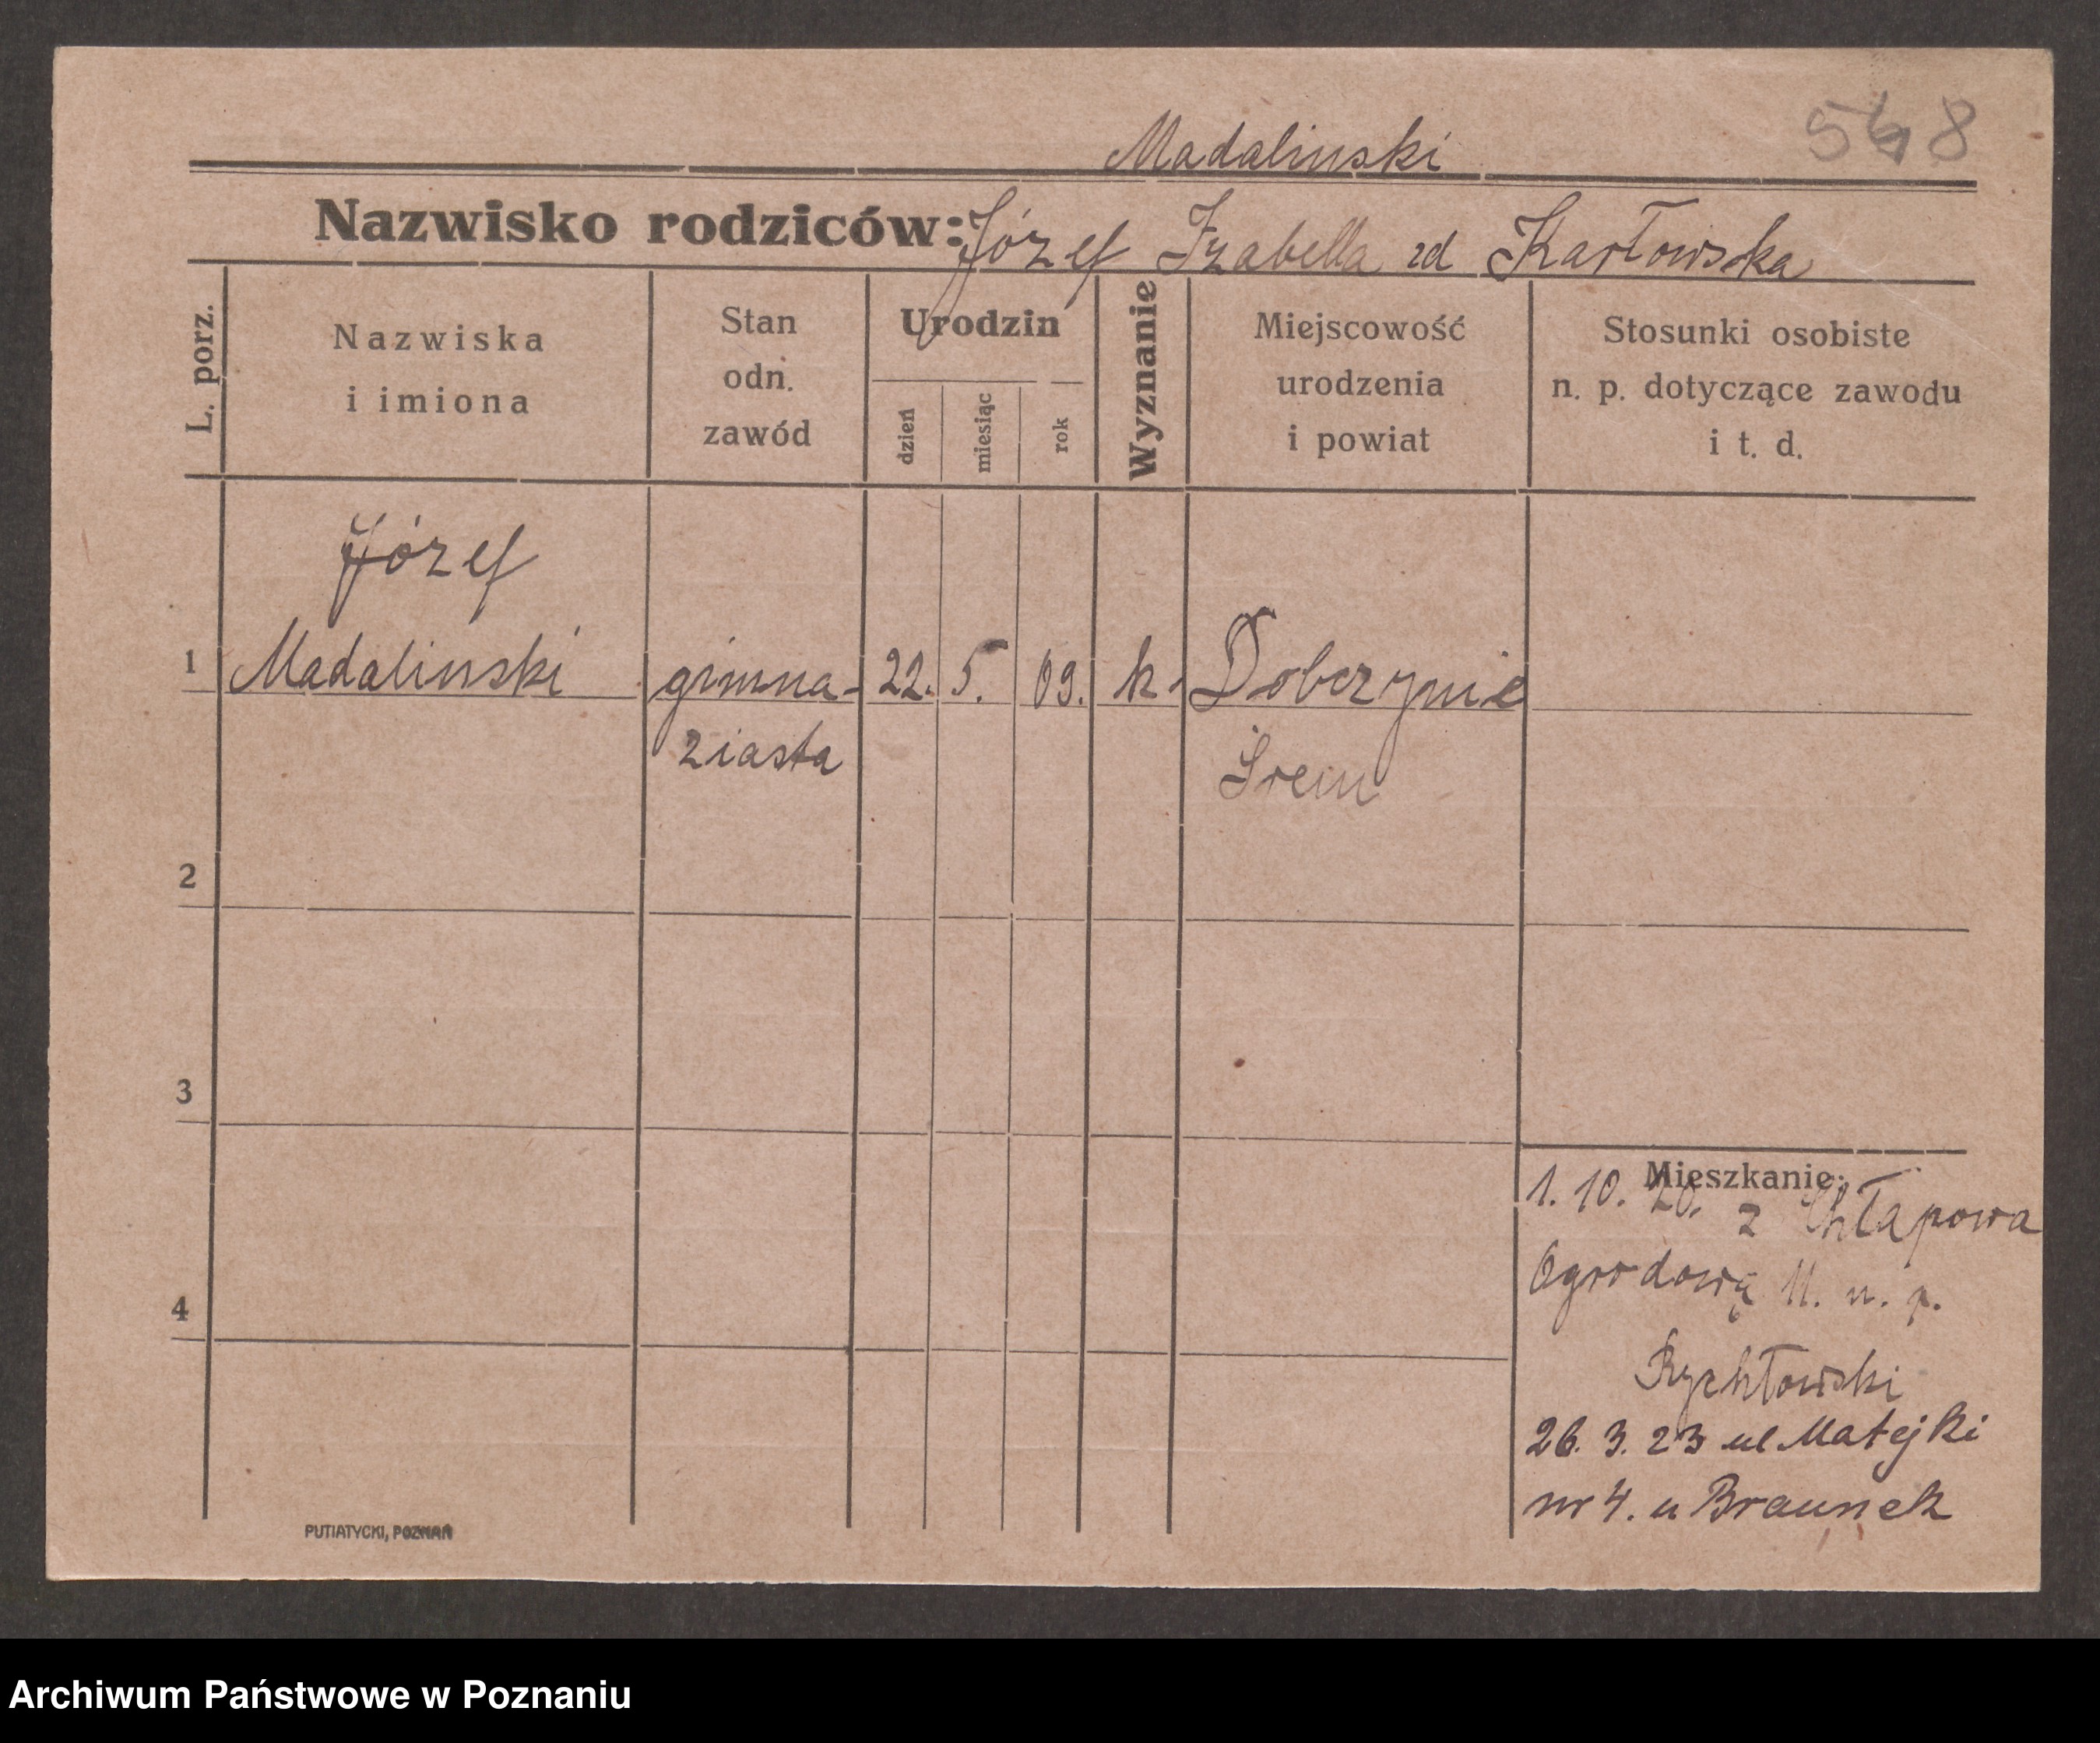 548
Madalinski
Nazwisko rodziców: Józef Izabella zd Karłowska
L. porz.
Nazwiska
i imiona
Stan
odn.
zawód
Urodzin
dzień
miesiąc
rok
Wyznanie
Miejscowość
urodzenia
i powiat
Stosunki osobiste
n. p. dotyczące zawodu
i t. d.
Józef
1 Madalinski gimna- 22. 5. 09. k. Dobczynie
ziasta Śrem
2
3
Mieszkanie:
1. 10. 20. z Chłapowa
Ogrodową 11. n. p.
4
Rychłowski
26. 3. 23 ul Matejki
nr 4. u Braunek
PUTIATYCKI, POZNAŃ
Archiwum Państwowe w Poznaniu